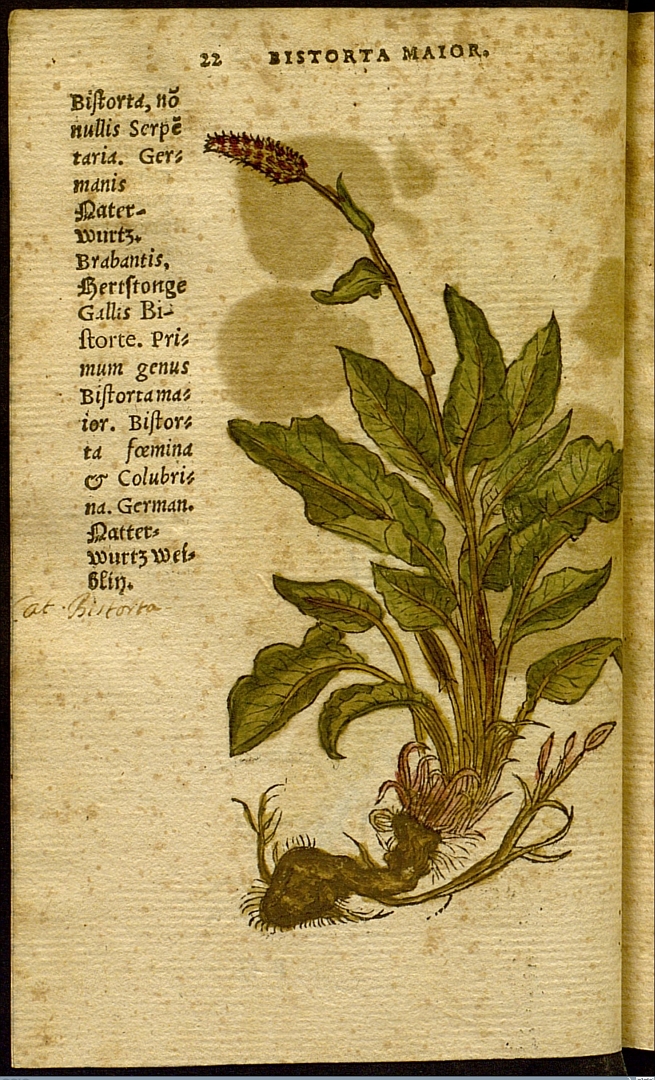 22 BISTORTA MAIOR.
Biſtorta, nõ
nullis Serpẽ
taria. Ger⸗
manis
Nater-
wurtz.
Brabantis,
Hertſtonge
Gallis Bi-
ſtorte. Pri⸗
mum genus
Biſtorta ma⸗
ior. Biſtor⸗
ta fœmina
& Colubri⸗
na. German.
Natter-
wurtz wei-
blin.
Cat. Bistorta